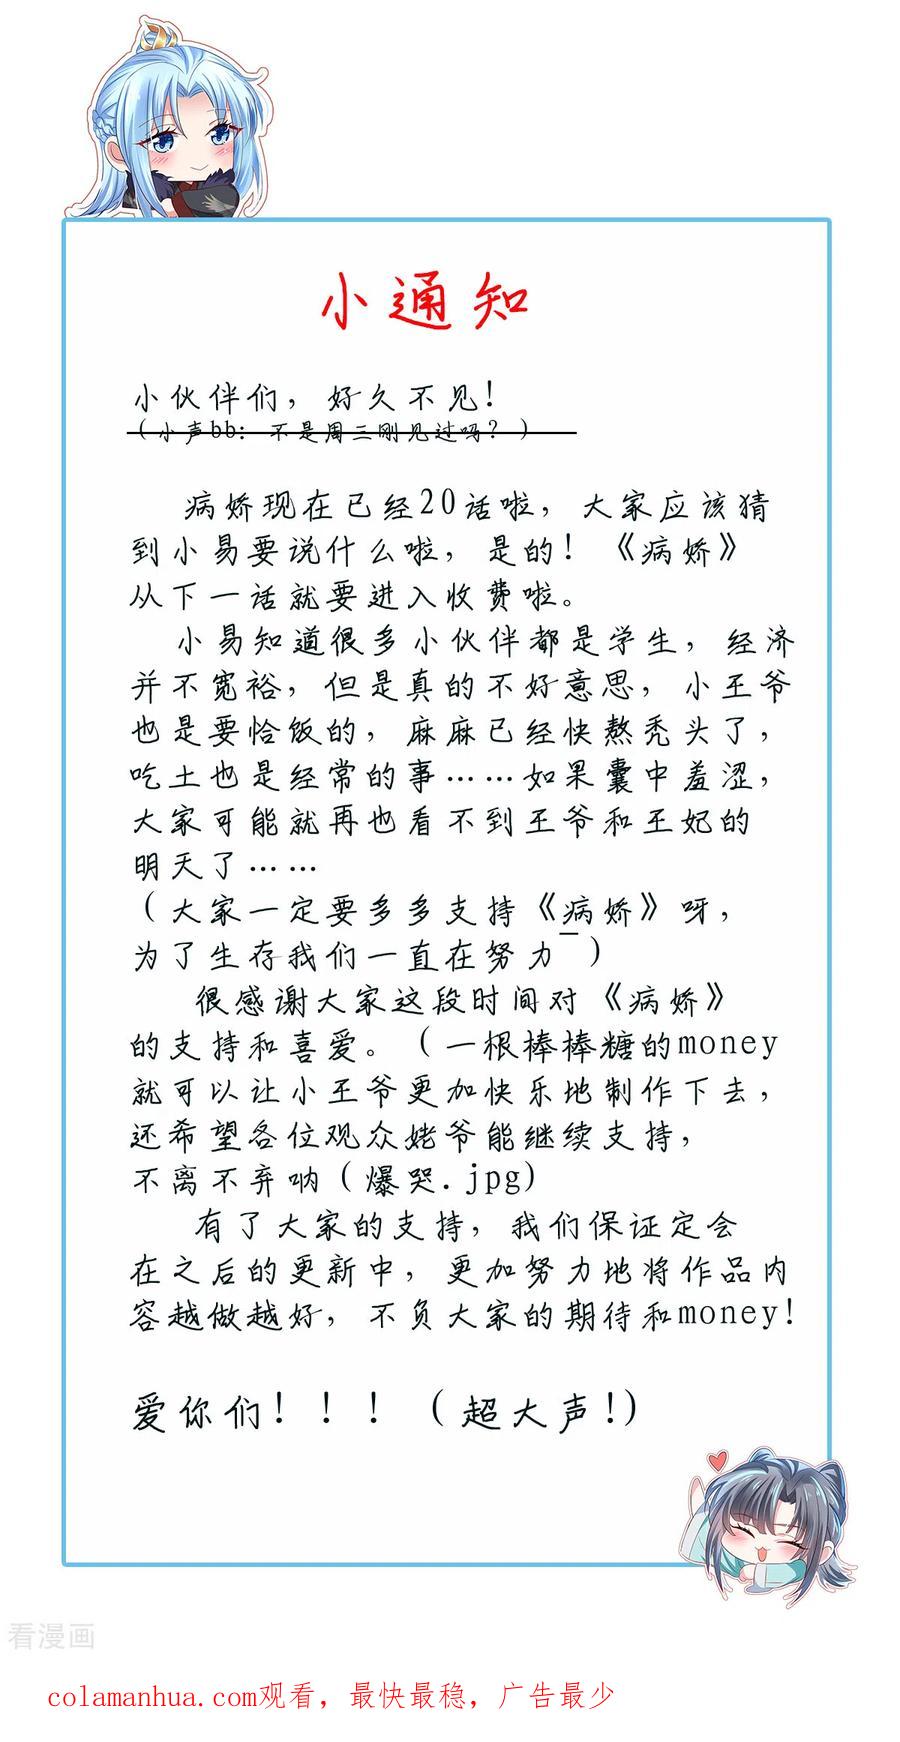 小通知
小伙伴们，好久不见！
（小声bb：不是周三刚见过吗？）
病娇现在已经20话啦，大家应该猜
到小易要说什么啦，是的！《病娇》
从下一话就要进入收费啦。
小易知道很多小伙伴都是学生，经济
并不宽裕，但是真的不好意思，小王爷
也是要恰饭的，麻麻已经快熬秃头了，
吃土也是经常的事……如果囊中羞涩，
大家可能就再也看不到王爷和王妃的
明天了……
（大家一定要多多支持《病娇》呀，
为了生存我们一直在努力￣）
很感谢大家这段时间对《病娇》
的支持和喜爱。（一根棒棒糖的money
就可以让小王爷更加快乐地制作下去，
还希望各位观众姥爷能继续支持，
不离不弃呐（爆哭.jpg）
有了大家的支持，我们保证定会
在之后的更新中，更加努力地将作品内
容越做越好，不负大家的期待和money！
爱你们！！！（超大声！）
看漫画
colamanhua.com观看，最快最稳，广告最少